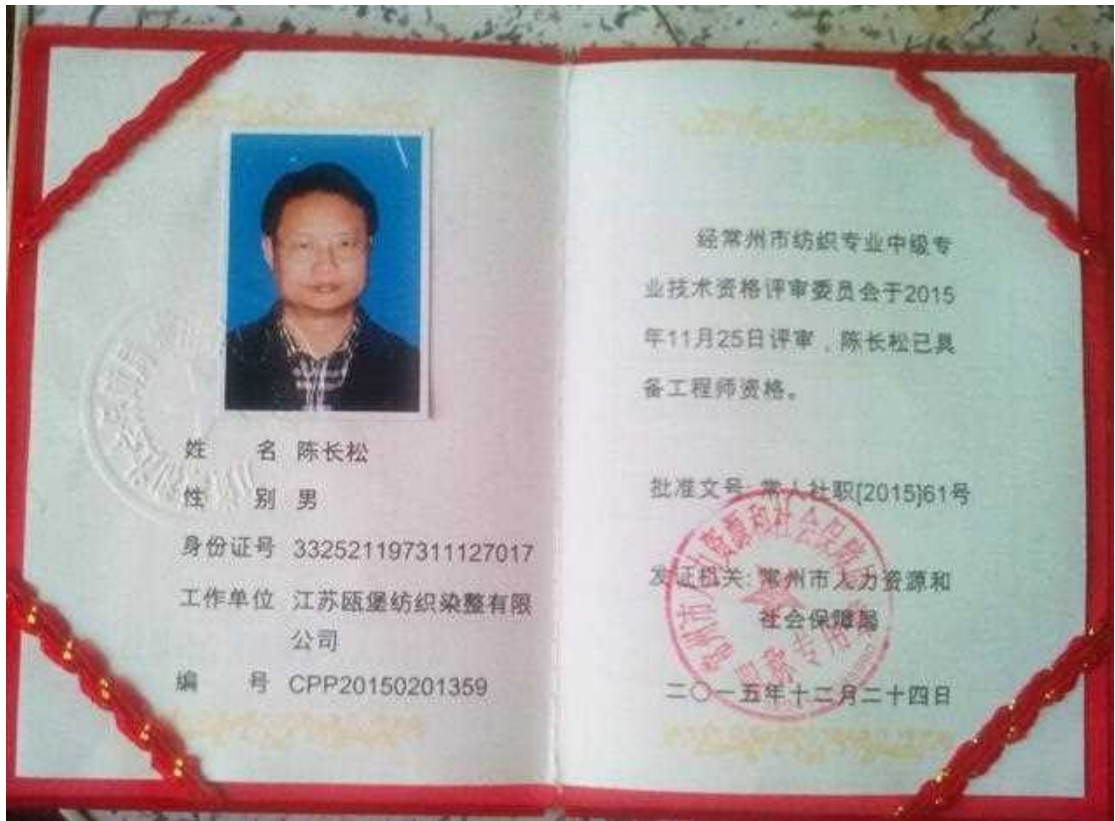 姓 名 陈长松
性 别 男
身份证号 332521197311127017
工作单位 江苏瓯堡纺织染整有限
公司
编 号 CPP20150201359
经常州市纺织专业中级专
业技术资格评审委员会于2015
年11月25日评审，陈长松已具
备工程师资格。
批准文号:常人社职[2015]61号
发证机关:常州市人力资源和
社会保障局
二〇一五年十二月二十四日